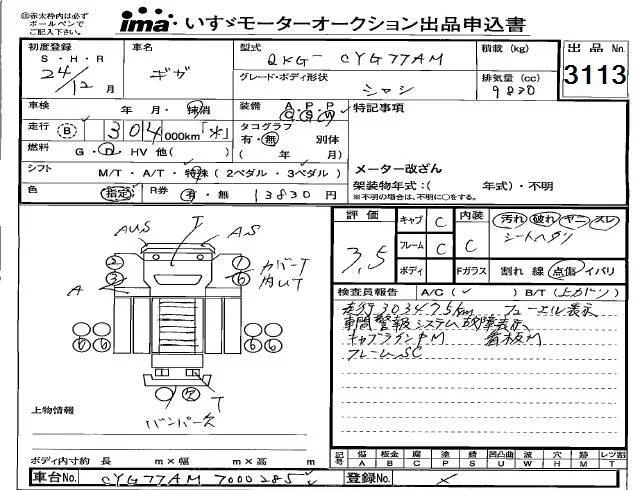 ◎赤太枠内は必ず
ボールペンで
ご記入下さい。
ima いすゞモーターオークション出品申込書
初度登録 車名 型式 積載(kg) 出品No.
S・H・R
24/12月 ギガ QKG-CYG77AM 3113
グレード・ボディ形状 排気量(cc)
シャシ 9830
車検 年 月・抹消 装備 A・P・P C S W 特記事項
走行 B 304,000km「*」 タコグラフ 有・無 別体
燃料 G・D・HV 他( ) ( 年 月)
シフト M/T・A/T・特殊(2ペダル・3ペダル) メーター改ざん
色 指定 R券 有・無 13830円 架装物年式:( 年式)・不明
※不明の場合は、不明に〇をする。
評価 キャブ C 内装 汚れ 破れ ヤニ スレ
3.5 フレーム C C シートヘタリ
ボディ Fガラス 割れ 線 点傷 イバリ
AUS T AS
② ① カバーT
③ ① 内UT
A
⑥⑥ ⑥⑥
欠 T
バンパー欠
検査員報告 A/C(✓) B/T(上カドン)
走行303475km フューエル表示
車間警報システム故障表示
キャブランプM 看板M
フレームSC
上物情報
ボディ内寸約 長 m×幅 m×高 m
記号 傷 板金 腐 塗 錆 凹凸曲 波 穴 跡 レツ割
A B C P S U W H M T
車台No. CYG77AM 7000285 登録No. ×